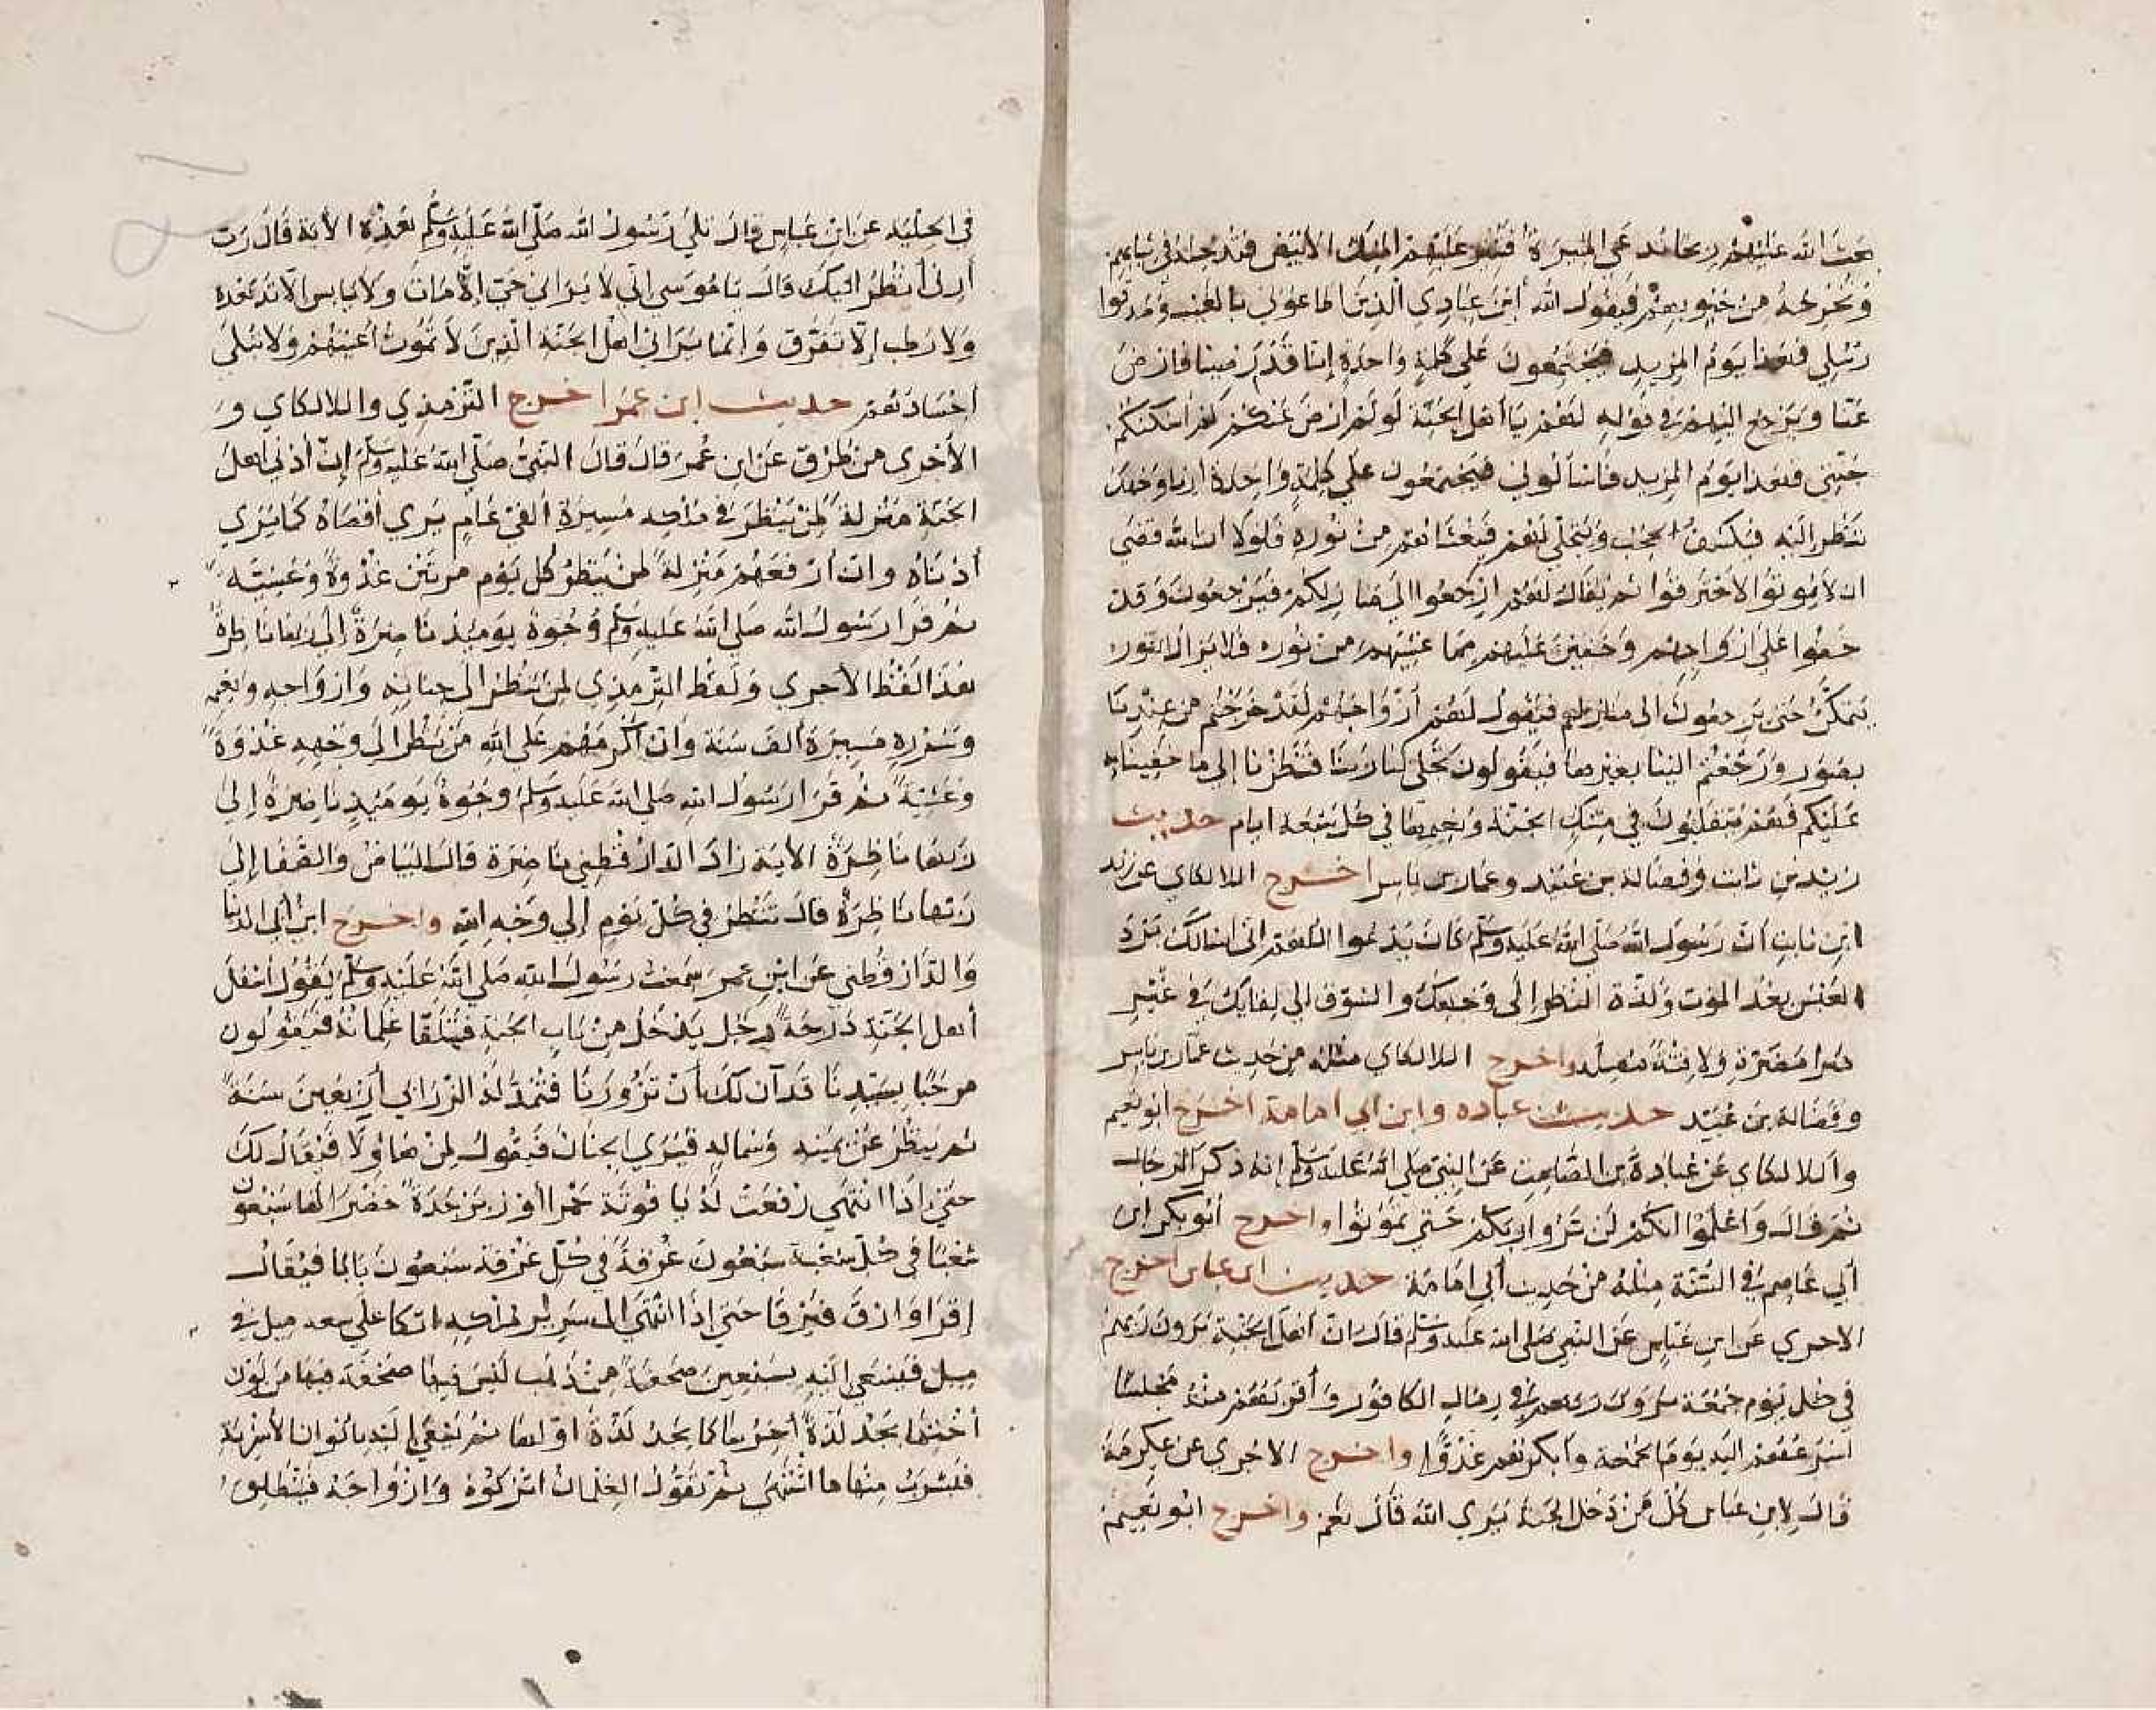 بعث الله عليهم ريحا تدعى المثيرة فتثير عليهم المسك الأبيض فتدخله في ثيابهم
وتخرجه من جيوبهم فيقول الله أين عبادي الذين اطاعوني بالغيب وصدقوا
رسلي فهذا يوم المزيد فيجتمعون على كلمة واحدة إنا قد رضينا فارض
عنا ويرجع اليهم في قوله لهم يا أهل الجنة لو لم ارض عنكم لم اسكنكم
جنتي فهذا يوم المزيد فاسألوني فيجتمعون على كلمة واحدة ارنا وجهك
ننظر اليه فيكشف الحجب ويتجلى لهم فيغشاهم من نوره فلولا ان الله قضى
ان لا يموتوا لاحترقوا ثم يقال لهم ارجعوا الى منازلكم فيرجعون وقد
خفوا على ازواجهم وخفين عليهم مما غشيهم من نوره فلا يزال النور
يتمكن حتى يرجعون الى منازلهم فيقول لهم أزواجهم لقد خرجتم من عندنا
بصور ورجعتم الينا بغيرها فيقولون تجلى لنا ربنا فنظرنا إلى ما خفينا به
عليكم فهم يتقلبون في مسك الجنة ونعيمها في كل سبعة ايام حديث
زيد بن ثابت وفضالة بن عبيد وعمار بن ياسر اخرج اللالكاي عن زيد
ابن ثابت أن رسول الله صلى الله عليه وسلم كان يدعوا اللهم اني اسالك برد
العيش بعد الموت ولذة النظر الى وجهك والشوق الى لقايك في غير
ضرا مضرة ولا فتنة مضلة واخرج اللالكاي مثله من حديث عمار بن ياسر
وفضالة بن عبيد حديث عباده وابن ابي امامة اخرج أبو نعيم
واللالكاي عن عبادة بن الصامت عن النبي صلى الله عليه وسلم إنه ذكر الدجال
ثم قال واعلموا انكم لن تروا ربكم حتى تموتوا واخرج أبو بكر ابن
أبي عاصم في السنة مثله من حديث أبي امامة حديث ابن عباس اخرج
الاجري عن ابن عباس عن النبي صلى الله عليه وسلم قال ان أهل الجنة يرون ربهم
في كل يوم جمعة في رمال الكافور وأقربهم منه مجلسا
اسرعهم اليه يوم الجمعة وأبكرهم غدوا واخرج الاجري عن عكرمة
قال لابن عباس كل من دخل الجنة يرى الله قال نعم واخرج ابو نعيم
في الحلية عن ابن عباس قال تلى رسول الله صلى الله عليه وسلم هذه الأية قال رب
أرني أنظر اليك قال يا موسى اني لا يراني حي إلا مات ولا يابس الا تدهده
ولا رطب إلا تفرق وإنما يراني اهل الجنة الذين لا تموت أعينهم ولا تبلى
أجسادهم حديث ابن عمر اخرج الترمذي واللالكاي و
الأجرى من طرق عن ابن عمر قال قال النبي صلى الله عليه وسلم إن أدنى أهل
الجنة منزلة لمن ينظر في ملكه مسيرة ألفي عام يرى أقصاه كما يرى
أدناه وان أرفعهم منزلة لمن ينظر كل يوم مرتين غدوة وعشية
ثم قرا رسول الله صلى الله عليه وسلم وجوة يوميذ ناضرة إلى ربها ناظرة
هذا لفظ الأجري ولفظ الترمذي لمن ينظر الى جنانه وازواجه ونعيمه
وسرره مسيرة ألف سنة وان اكرمهم على الله من ينظر الى وجهه غدوة
وعشية ثم قرا رسول الله صلى الله عليه وسلم وجوة يوميذ ناضرة إلى
ربها ناظرة الأية زاد الدارقطني ناضرة قال البياض والصفا إلى
ربها ناظرة قال تنظر في كل يوم إلى وجه الله واخرج ابن أبي الدنيا
والدارقطني عن ابن عمر سمعت رسول الله صلى الله عليه وسلم يقول أسفل
أهل الجنة درجة رجل يدخل من باب الجنة فيتلقا غلمانه فيقولون
مرحبا بسيدنا قد آن لك أن تزورنا فتمد له الزرابي أربعين سنة
ثم ينظر عن يمينه وشماله فيرى الجنان فيقول لمن هاولا فيقال لك
حتى اذا انتهى رفعت له ياقوتة حمرا أو زبرجدة خضرا لها سبعون
شعبا في كل شعب سبعون غرفة في كل غرفة سبعون بابا فيقال
إقرا وارق فيرقا حتى إذا انتهى الى سرير ملكه اتكا على سعه ميل في
ميل فيسعى اليه بسبعين صحفة من ذهب ليس فيها صحفة فيها من لون
أختها يجد لذة أخرها كما يجد لذة اولها ثم يسعى إليه بالوان الأشربة
فيشرب منها ما اشتهى ثم تقول الغلمان اتركوه وازواجه فينطلق